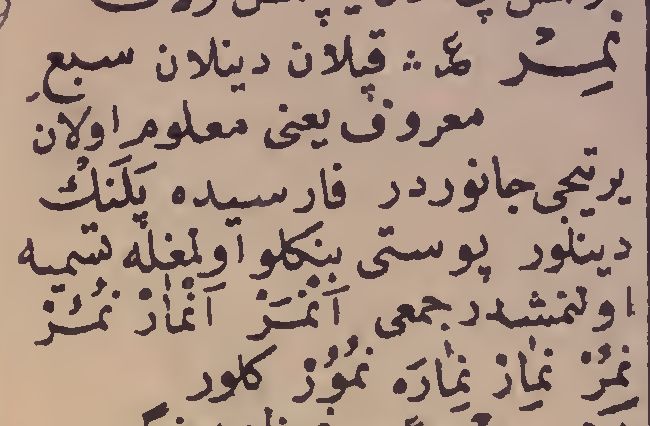 نَمِرْ ع؞ قپلان دینلان سبع
معروف یعنی معلوم اولان
یرتیجی جانوردر فارسیده پَلَنْك
دینلور پوستی بنکلو اولمغله تسمیه
اولنمشدر جمعی اَنْمُرْ اَنْمَارْ نُمُرْ
نُمْرْ نِمَارْ نِمَارَه نُمُورْ کلور